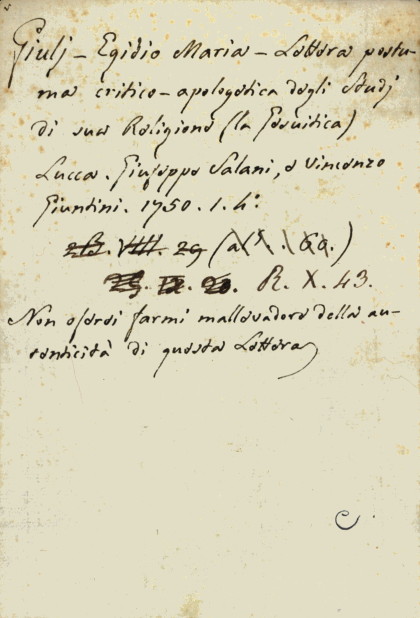 Giulj - Egidio Maria - Lettera postu-
ma critico-apologetica degli studj
di sua Religione (la Gesuitica)
Lucca. Giuseppe Salani, e Vincenzo
Giuntini. 1750. 1. 4.°
VIII. 29
R. X. 43.
Non oserei farmi mallevadore della au-
tenticità di questa Lettera
C